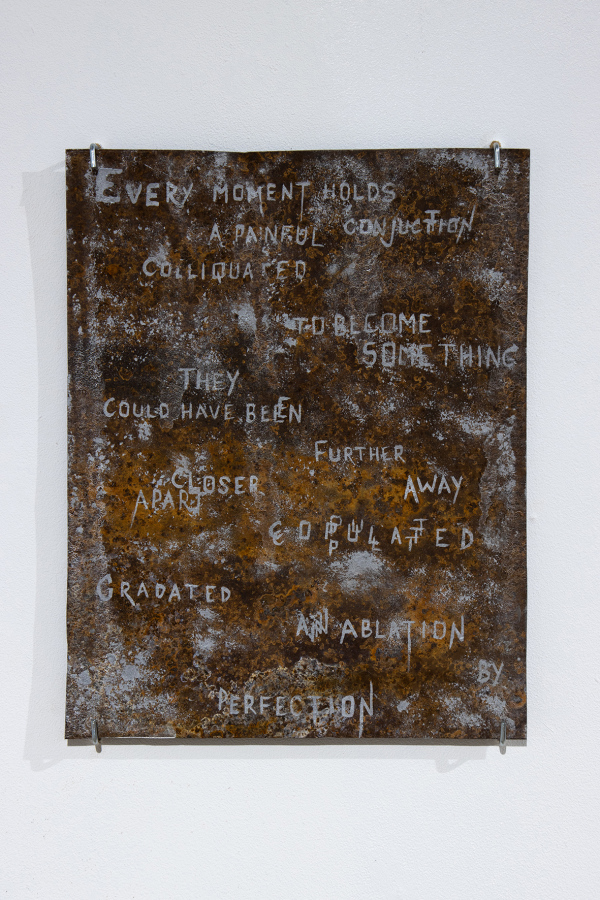 EVERY MOMENT HOLDS
A PAINFUL CONJUCTION
COLLIQUATED
TO BECOME
SOMETHING
THEY
COULD HAVE BEEN
FURTHER
CLOSER AWAY
APART
COPULATED
GRADATED
AN ABLATION
BY
PERFECTION